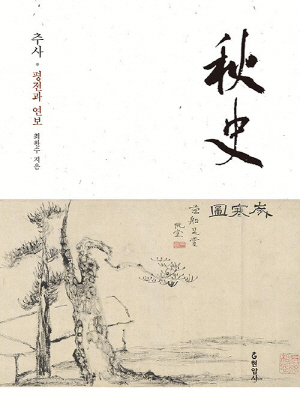 추사 · 평전과 연보
최완수 지음
秋史
歲寒圖
藕船是賞
阮堂
현암사